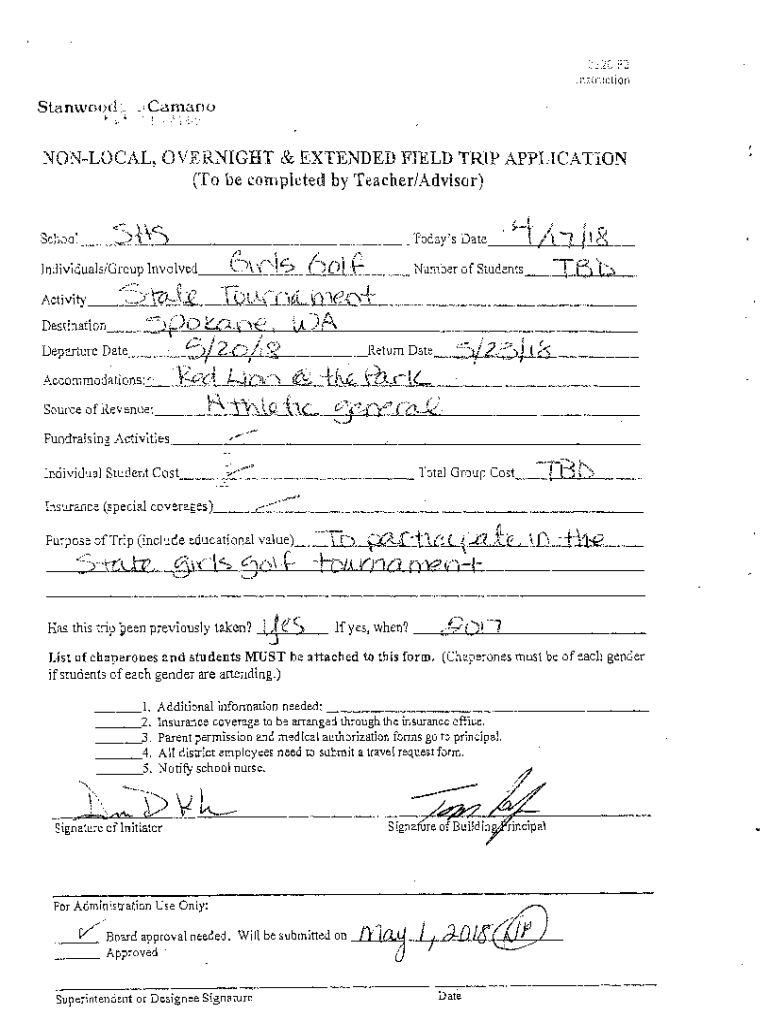 Instruction
Stanwood Camano
NON-LOCAL, OVERNIGHT & EXTENDED FIELD TRIP APPLICATION
(To be completed by Teacher/Advisor)
School SHS Today's Date 4/17/18
Individuals/Group Involved Girls Golf Number of Students TBD
Activity State Tournament
Destination Spokane, WA
Departure Date 5/20/18 Return Date 5/23/18
Accommodations: Red Lion @ the Park
Source of Revenue: Athletic general
Fundraising Activities —
Individual Student Cost — Total Group Cost TBD
Insurance (special coverages) —
Purpose of Trip (include educational value) To participate in the
State girls golf tournament
Has this trip been previously taken? yes If yes, when? 2017
List of chaperones and students MUST be attached to this form. (Chaperones must be of each gender
if students of each gender are attending.)
1. Additional information needed:
2. Insurance coverage to be arranged through the insurance office.
3. Parent permission and medical authorization forms go to principal.
4. All district employees need to submit a travel request form.
5. Notify school nurse.
Signature of Initiator Signature of Building Principal
For Administration Use Only:
✓ Board approval needed. Will be submitted on May 1, 2018
Approved
Superintendent or Designee Signature Date